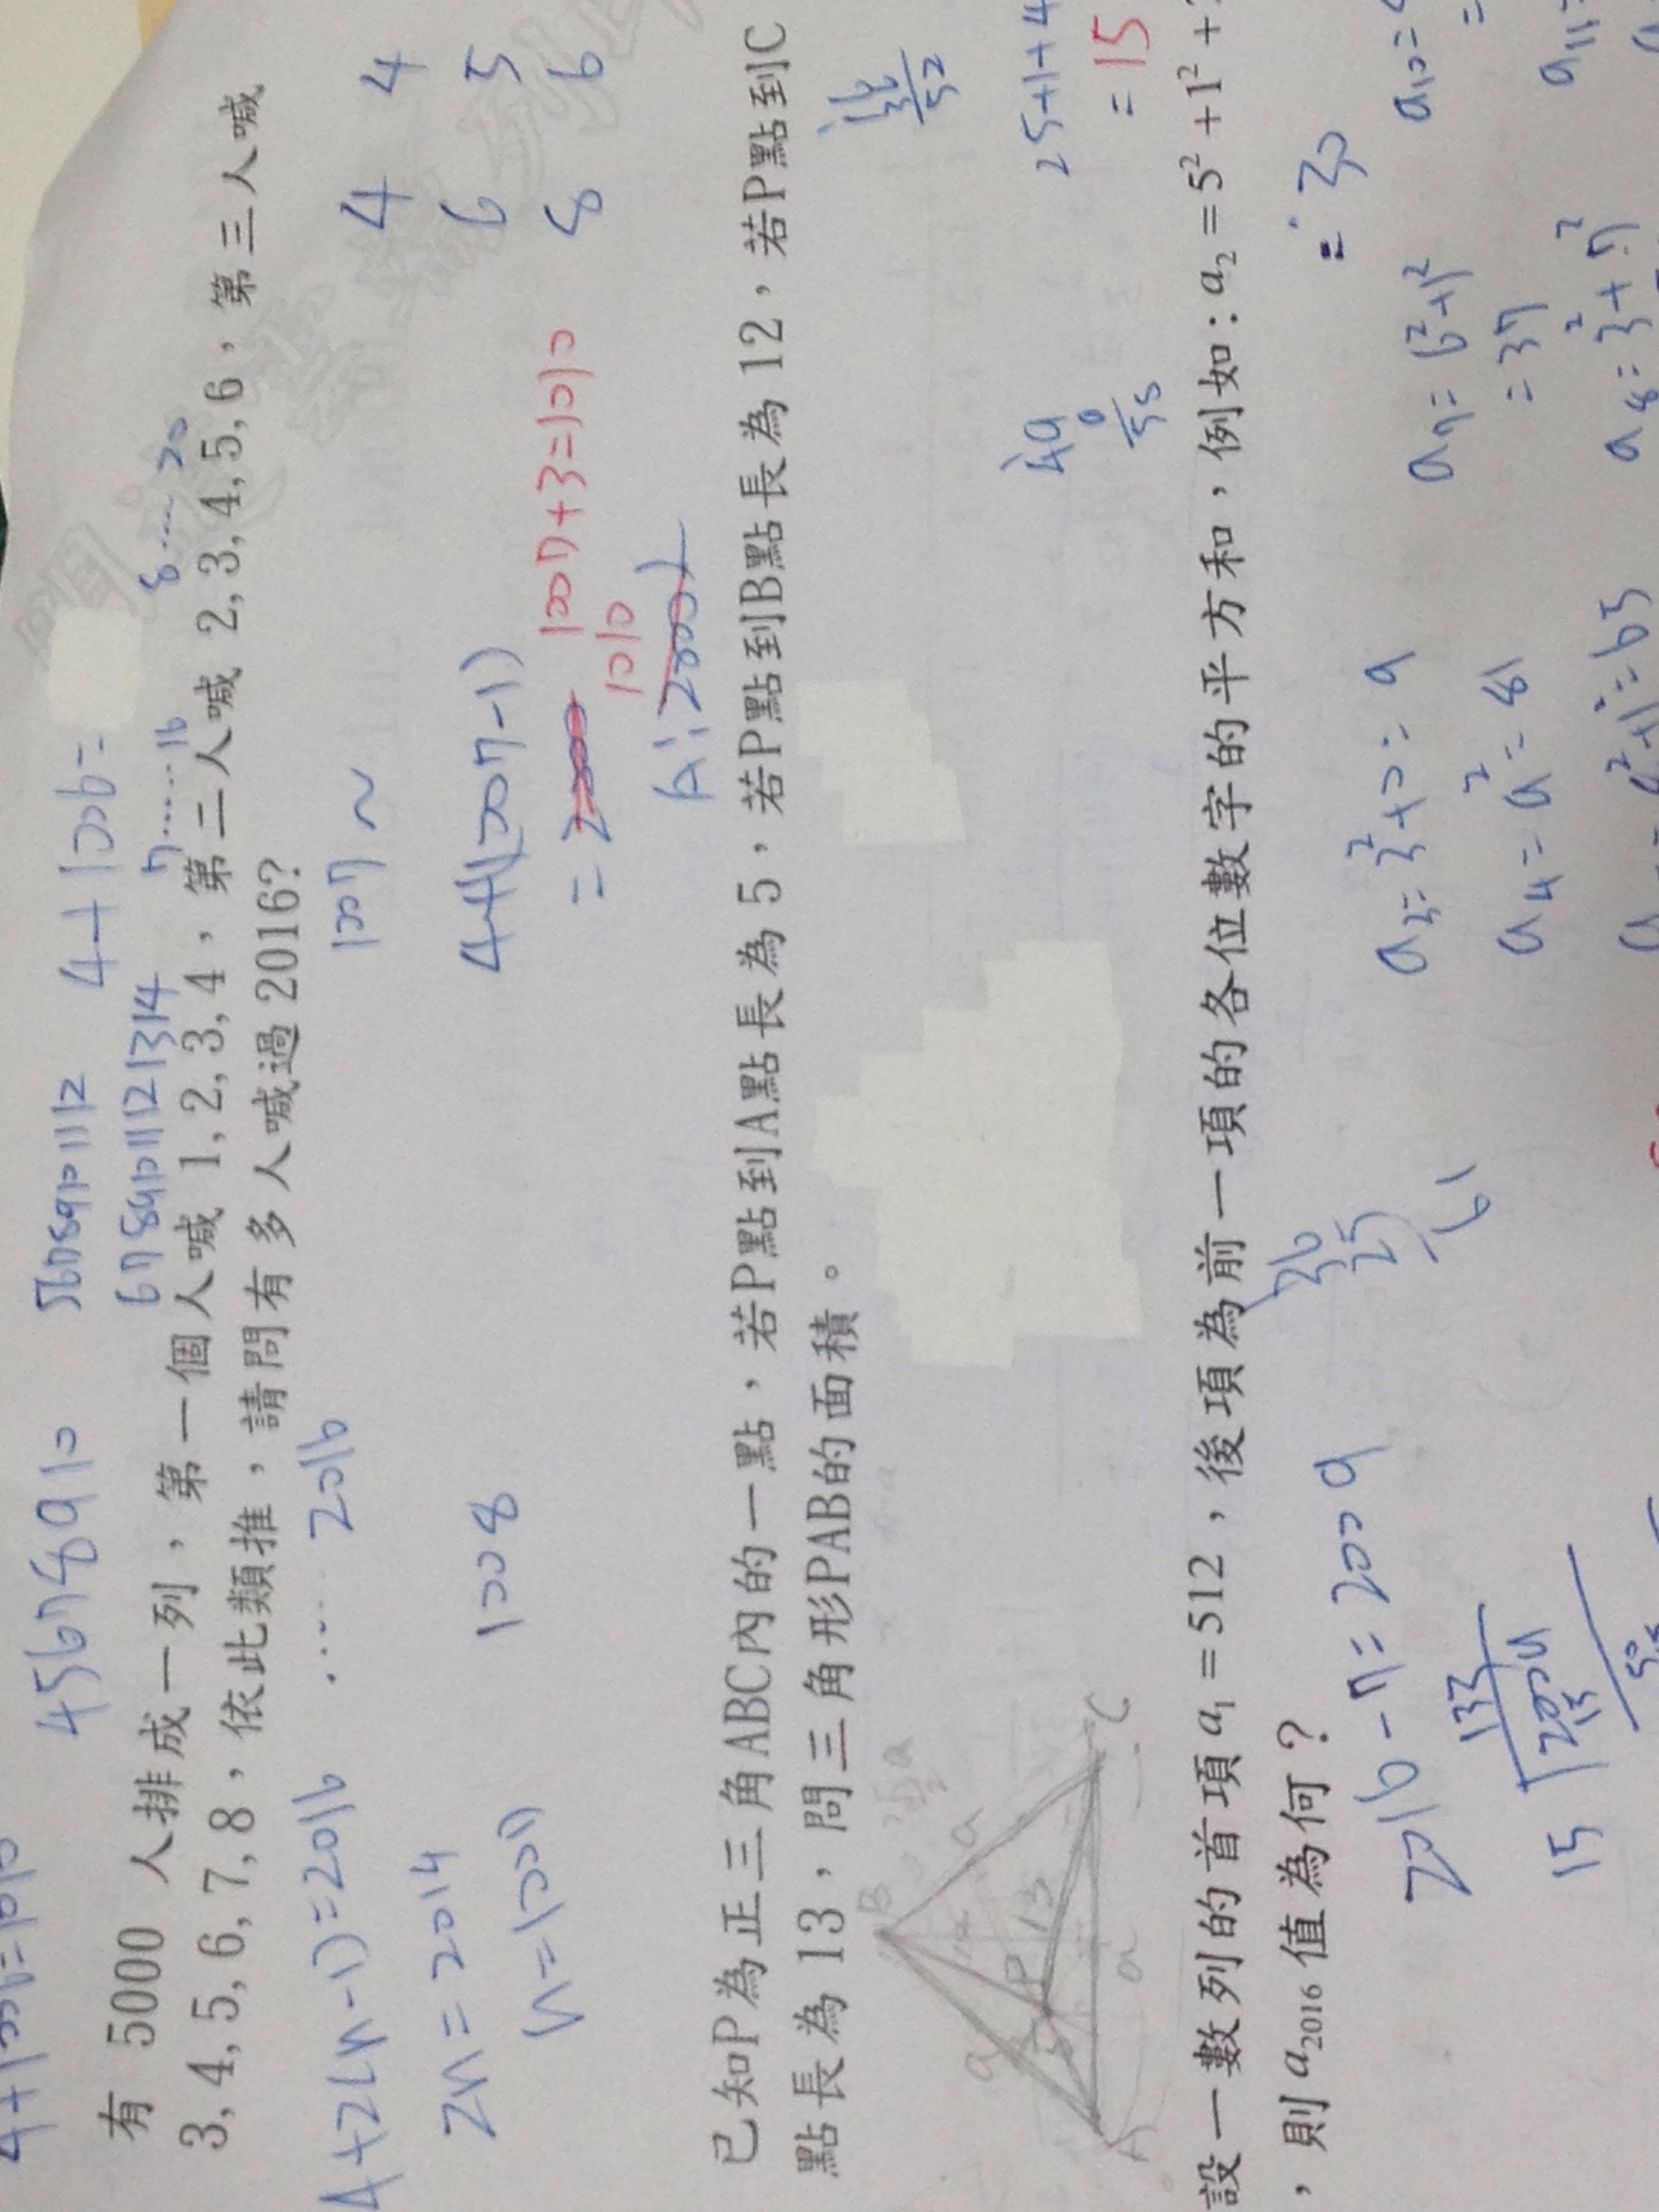 45678910
56789101112
4+1006=
67891011121314
7……16
8……20
有 5000 人排成一列，第一個人喊 1,2,3,4，第二人喊 2,3,4,5,6，第三人喊
3,4,5,6,7,8，依此類推，請問有多少人喊過2016?
4+2(n-1)=2016
… 2016
1007~
4 4
2n=2014
1008
4+1(1007-1)
6 5
n=1007
=
1007+3=1010
8 6
1010
A:
已知P為正三角ABC內的一點，若P點到A點長為5，若P點到B點長為12，若P點到C
點長為13，問三角形PAB的面積。
B
a
a
12
P
13
5
A
a
C
25+1+4
=
15
設一數列的首項a₁=512，後項為前一項的各位數字的平方和，例如：a₂=5²+1²+
，則a₂₀₁₆值為何？
=30
36
25
61
2016-7=2009
a₃=3²+0=9
a₇=6²+1²
a₁₀=
133
15
2009
15
50
a₄=9²=81
=37
a₁₁=
a₈=3²+7²